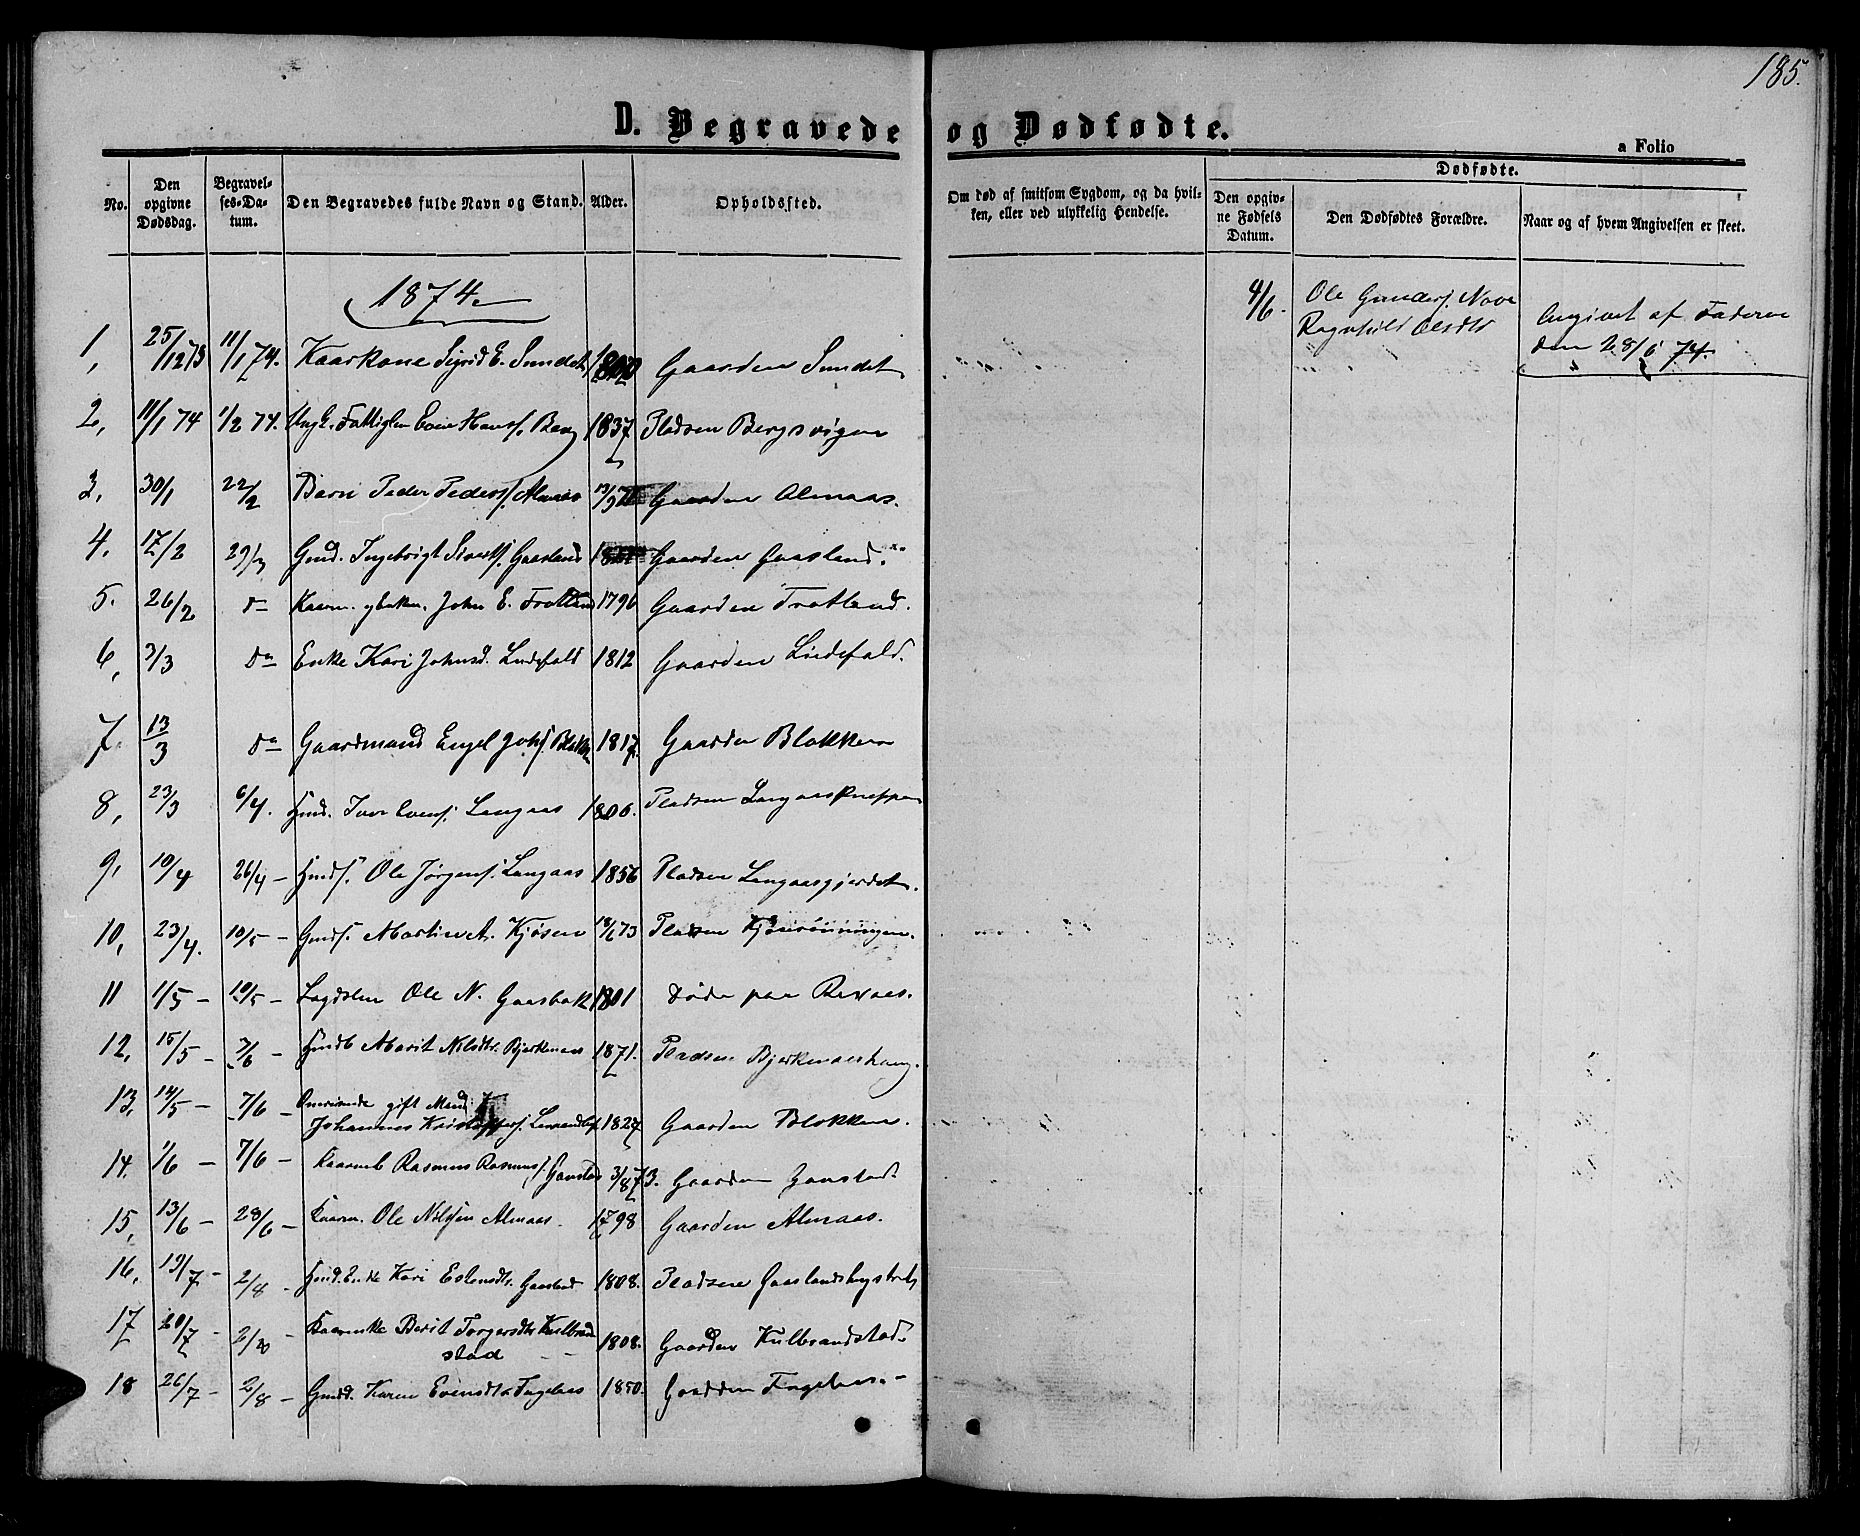 185.
D. Begravede og Dødfødte.
a Folio
No.
Den opgivne Dødsdag.
Begravelses-Datum.
Den Begravedes fulde Navn og Stand.
Alder.
Opholdssted.
Om død af smitsom Sygdom, og da hvilken, eller ved ulykkelig Hendelse.
Dødfødte.
Den opgivne Fødsels Datum.
Den Dødfødtes Forældre.
Naar og af hvem Angivelsen er skeet.
1874.
1, 25/12 73 11/1 74. Kaarkone Sigrid E. Sundet Gaarden Sundet
2, 11/1 74 1/2 74. Ungk. Fattiglem Even Hanss. Berg 1837 Pladsen Bergsvigen
3, 30/1 22/2 Barn Peder Peders. Almaas Gaarden Almaas.
4. 17/2 29/3 Gmd. Ingebrigt Sivers. Gaasland Gaarden Gaasland.
5. 26/2 do John E. Fratland 1796 Gaarden Fratland.
6, 3/3 do Enke Kari Johnsd. Lindefald 1812 Gaarden Lindefald.
7. 13/3 do Gaardmand Engel Johs. Blokken 1817. Gaarden Blokken
8, 23/3 6/4. Hmd. Iver Evens. Langaas 1806. Pladsen Langaaskneppen
9, 10/4 26/4 - Hmds. Ole Jørgens. Langaas 1856 Pladsen Langaasgjerdet.
10, 23/4. 10/5 - Gmds. Martin A. Kjøsen 18/6 73 Pladsen Kjøsrønningen.
11 1/5 - 10/5 - Lægdslem Ole N. Gaasbak 1801 døde paa
12, 15/5 - 7/6 - Hmdb Marit Nilsdtr. Bjerkenaas 1871. Pladsen Bjerkenaashaug.
13, 14/5 - 7/6 - gift Mand
Johannes Kristoffers. 1827 Gaarden Blokken.
14. 1/6 - 7/6 - Rasmus Rasmuss. Gaustad 3/8 73. Gaarden Gaustad.
15, 13/6 - 28/6 - Kaarm. Ole Nilsen Almaas. 1798 Gaarden Almaas.
16, 19/7 - 2/8 - Hmd. Enke Kari Estensdtr. 1808. Pladsen
17 20/7 - 2/8 - Kaarenke Berit Torgersdtr Kulbrandstad 1808. Gaarden Kulbrandstad.
18 26/7 - 2/8 - Gmdd. Karen Evensdtr 1850. Gaarden
4/6. Ole Gunders. Nove
Ragnhild Olsdtr
Angivet af Faderen
den 28/6 74.